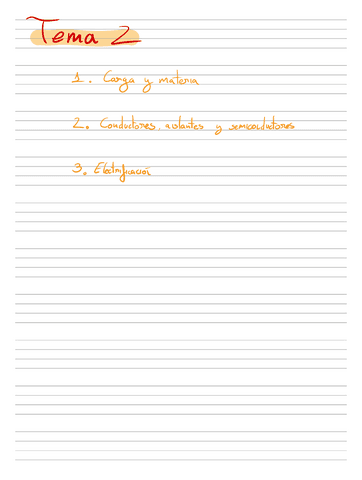 Tema 2
1. Carga y materia
2. Conductores, aislantes y semiconductores
3. Electrificación